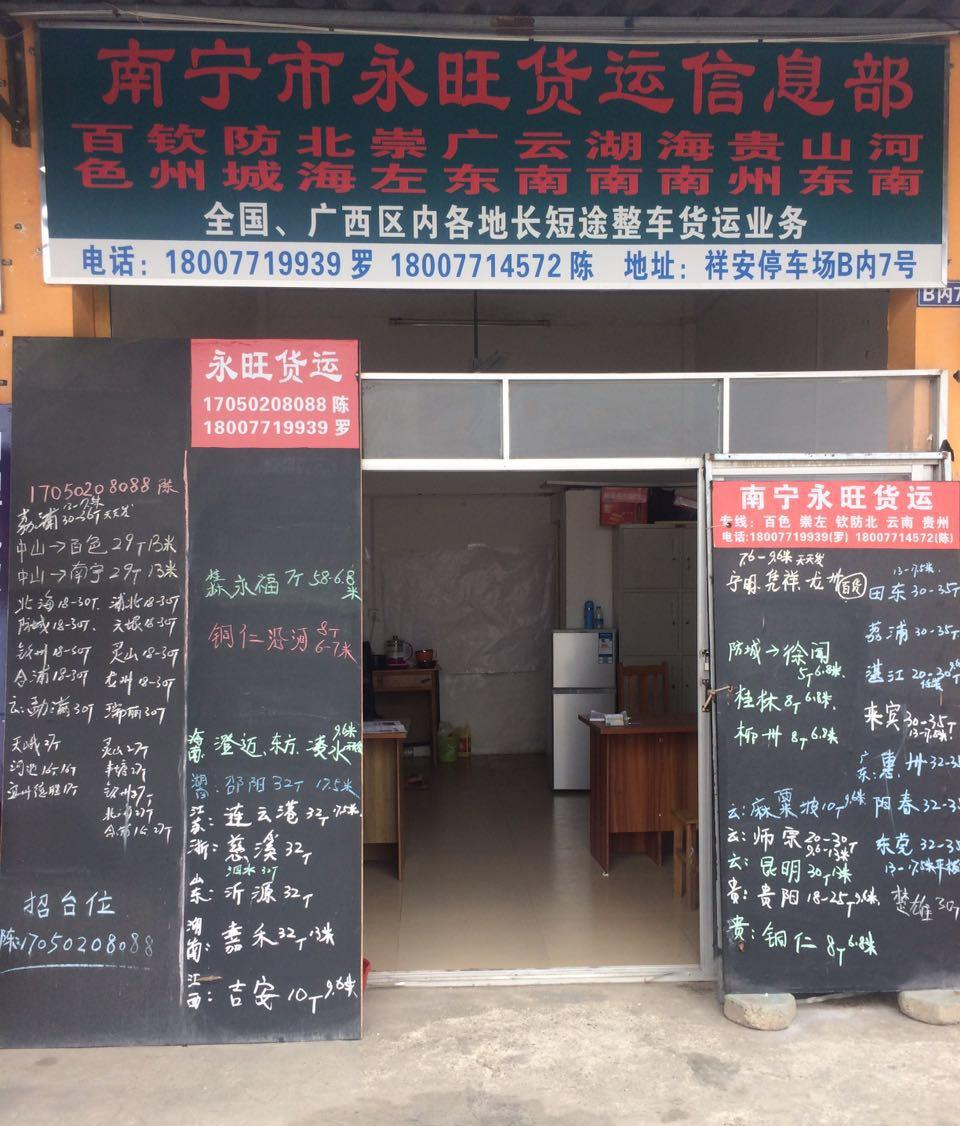 南宁市永旺货运信息部
百色 钦州 防城 北海 崇左 广东 云南 湖南 海南 贵州 山东 河南
全国、广西区内各地长短途整车货运业务
电话：18007719939 罗 18007714572 陈 地址：祥安停车场B内7号
B内7
永旺货运
17050208088 陈
18007719939 罗
17050208088 陈
荔浦 30-36T 天天发
中山→百色 29T 13米
中山→南宁 29T 13米
北海 18-30T 浦北 18-30T
防城 18-30T.
钦州 18-30T 灵山 18-30T
合浦 18-30T 18-30T
云: 勐满 30T 瑞丽 30T
天峨 灵山 27T
河池 16T
宜州德胜 17T 钦州 27T
北海 27T
招台位
陈:17050208088
永福 7T 5.8-6.8米
铜仁沿河 8T 6-7米
海南: 澄迈、东方、陵水 9.6米
湖南: 邵阳 32T 17.5米
江苏: 连云港 32T 17.5米
浙: 慈溪 32T
泗水 32T
山东: 沂源 32T
湖南: 嘉禾 32T 13米
江西: 吉安 10T 9.6米
南宁永旺货运
专线：百色 崇左 钦防北 云南 贵州
电话:18007719939(罗) 18007714572(陈)
7.6-9.6米 天天发
宁明、凭祥、龙州 百货
13-17.5米.
田东 30-35T
荔浦 30-35T
防城→徐闻 5T 6.8米.
湛江 20-30T 9.6 任装
桂林 8T 6.8米
来宾 30-35T 13-17.5米
柳州 8T 6.8米
广东: 惠州 32-35
云: 麻栗坡 10T 9.6米
阳春 32-35
云: 师宗 20-30T 9.6-13米
东莞 32-35
13-17.5米平板
云: 昆明 30T 13米
贵: 贵阳 18-25T 9.6米.
楚雄 30T
贵: 铜仁 8T 6.8米